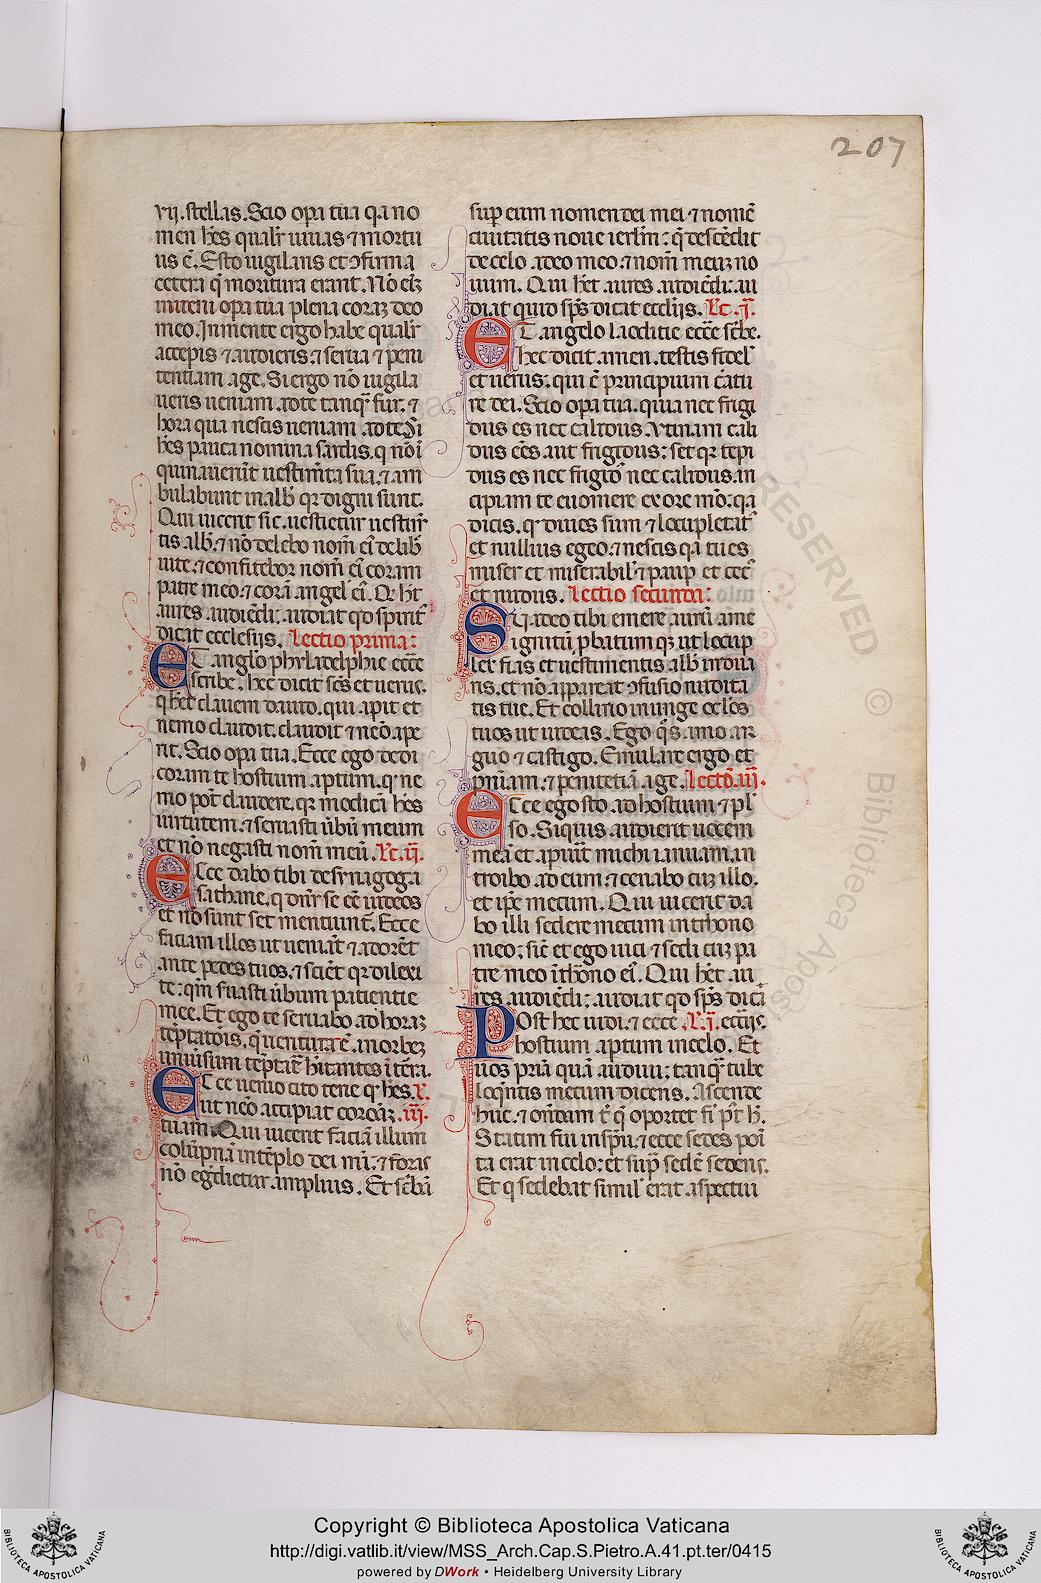 207
vij. stellas. Scio opa tua q̄a no
men hēs qualr̄ uiuas ⁊ mortu
us ē. Esto uigilans et ꝯfirma
cetera q̄ moritura erant. Nō eīȝ
inueni opa tua plena coraȝ deo
meo. In mente ergo habe qualr̄
acceꝑis ⁊ audieris ⁊ serua ⁊ peni
tentiam age. Si ergo nō uigila
ueris ueniam ad te tanq̄ fur. ⁊
hora qua nescis ueniam ad te. Si
hēs pauca nomina sardis. q̄ nō ī
quinauerūt uestim̄ta sua. ⁊ am
bulabunt in alb̄ qꝛ digni sunt.
Qui uicerit sic uestietur uestim̄
tis alb̄. ⁊ nō delebo nom̄ eī de lib̄
uite. ⁊ confitebor nom̄ eī coram
patre meo. ⁊ corā angel̄ eī. Q̄ ht̄
aures audiēdi: audiat qd̄ spirit̄
dicat ecclesijs. Lectio prima:
Et angl̄o phyladelphie ecce
scribe. hec dicit sc̄s et uerus.
q̄ het clauem dauid. qui apit et
nemo claudit. claudit ⁊ nemo ape
rit. Scio opa tua. Ecce ego dedi
coram te hostium aptum. q̄ ne
mo pot̄ claudere. qꝛ modicā hēs
uirtutem. ⁊ seruasti ūbū meum
et nō negasti nom̄ meū. Lc̄. ij.
Ecce dabo tibi de synagoga
sathane. q̄ dn̄t se eē iudeos
et nō sunt set mentiunt̄. Ecce
faciam illos ut ueniāt ⁊ adorēt
ante pedes tuos. ⁊ sciēt qꝛ dilexi
te: qm̄ s̄uasti ūbum patientie
mee. Et ego te seruabo ab horaȝ
tēptatōis. q̄ uentura ē. in orbeȝ
uniūsum tēptare hītantes ī tēra.
Ecce uenio cito tene q̄ hēs. Lc̄.
ut nemo accipiat coronāȝ iij.
tuam. Qui uicerit faciā illum
colūpnā in tēplo dei mī. ⁊ foras
nō egdietur amplius. Et scbā
suꝑ eum nomen dei mei ⁊ nomē
ciuitatis noue ierl̄m: q̄ descēdit
de celo. a deo meo. ⁊ nom̄ meuȝ no
uum. Qui het aures audiēdi: au
diat quid sp̄s dicat eccl̄ijs. Lc̄. j.
Et angelo laoditie ecc̄e sc̄be.
Hec dicit amen. testis fidel̄
et uerus. qui ē principium c̄atu
re dei. Scio opa tua. quia nec frigi
dus es nec calidus. Utinam cali
dus eēs aut frigidus: set qꝛ tepi
dus es nec frigid̄ nec calidus. in
cipiam te euomere ex ore mō: qa
dicis. q̄ diues sum ⁊ locupletat̄
et nullius egeo. ⁊ nescis qa tu es
miser et miserabil̄ ⁊ pauꝑ et cec̄
et nudus. Lectio secunda:
Suadeo tibi emere aurū a me
ignitū ꝓbatum. qꝛ ut locup
let̄ fias et uestimentis alb̄ induā
ris. et nō appareat ꝯfusio nudita
tis tue. Et collirio inunge ocl̄os
tuos ut uideas. Ego q̄s amo ar
guo ⁊ castigo. Emulare ergo et
pniam. ⁊ penitētiā age. Lectō. iij.
Ecce ego sto ad hostium ⁊ pl̄
so. Siquis audierit uocem
meā et apuit michi ianuam. in
troibo ad eum: ⁊ cenabo cuȝ illo.
et ip̄e mecum. Qui uicerit da
bo illi sedere mecum in throno
meo: sic̄ et ego uici ⁊ sedi cuȝ pa
tre meo ī thrōno eī. Qui het au
res audiēdi: audiat qd̄ sp̄s dicā
Post hec uidi. ⁊ ecce Lc̄. j. eccl̄ijs.
hostium aptum in celo. Et
uox pria quā audiui: tanq̄ tube
loq̄ntis mecum dicens. Ascende
huc. ⁊ on̄dam t̄ q̄ oportet fi p̄t h̄.
Statim fui in spū. ⁊ ecce sedes posi
ta erat in celo: et suꝑ sedē sedens.
Et q sedebat simil̄ erat aspectui
RESERVED © Biblioteca Apos
Copyright © Biblioteca Apostolica Vaticana
http://digi.vatlib.it/view/MSS_Arch.Cap.S.Pietro.A.41.pt.ter/0415
powered by DWork • Heidelberg University Library
BIBLIOTECA APOSTOLICA VATICANA
BIBLIOTECA APOSTOLICA VATICANA